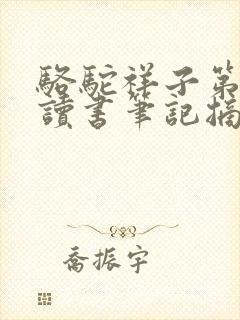 駱駝祥子第
讀書筆記摘
喬振宇